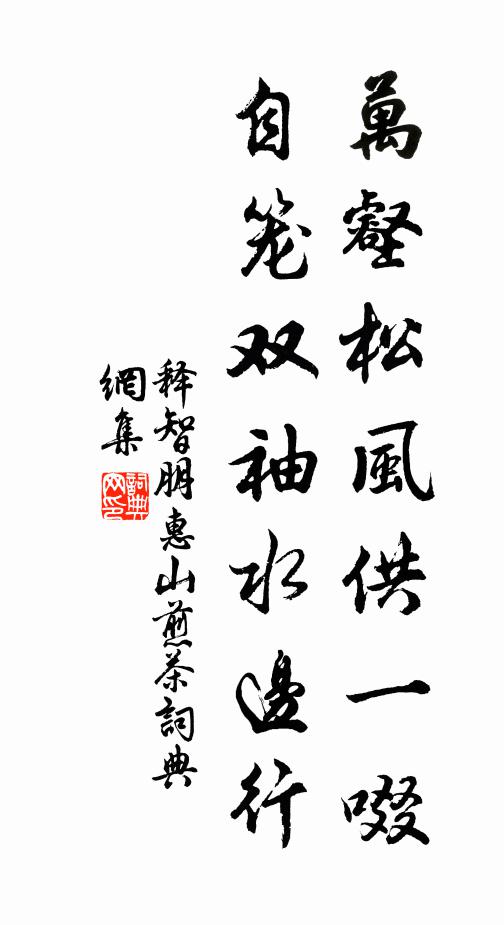 萬壑松風供一啜
自笼双袖水邊行
释智朋惠山煎茶詞典
網集
詞典网印